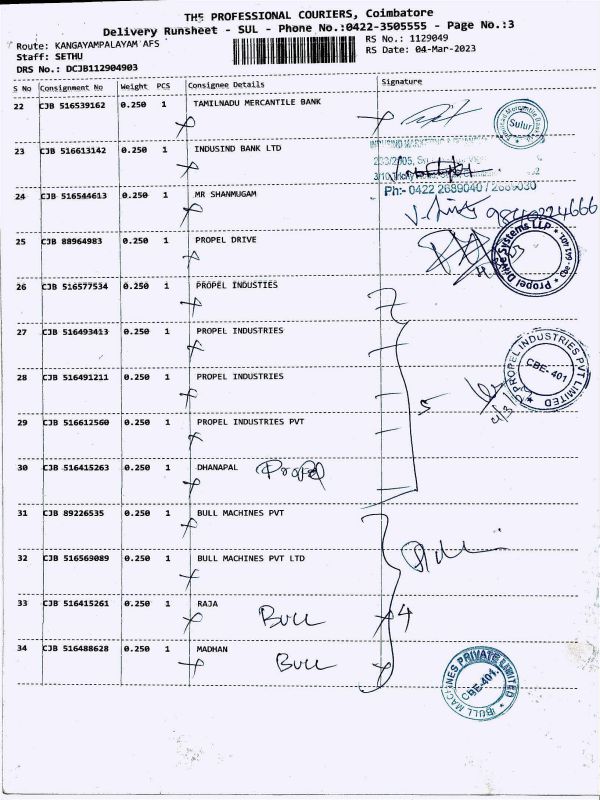 THE PROFESSIONAL COURIERS, Coimbatore
Delivery Runsheet - SUL - Phone No.:0422-3505555 - Page No.:3
Route: KANGAYAMPALAYAM AFS RS No.: 1129049
Staff: SETHU RS Date: 04-Mar-2023
DRS No.: DCJB112904903
S No Consignment No Weight PCS Consignee Details Signature
22 CJB 516539162 0.250 1 TAMILNADU MERCANTILE BANK
Sulur
23 CJB 516613142 0.250 1 INDUSIND BANK LTD
Ph:- 0422 2689040 / 2689030
24 CJB 516544613 0.250 1 MR SHANMUGAM
9840224666
25 CJB 88964983 0.250 1 PROPEL DRIVE
Propel Drive Systems LLP
26 CJB 516577534 0.250 1 PROPEL INDUSTIES
27 CJB 516493413 0.250 1 PROPEL INDUSTRIES
PROPEL INDUSTRIES PVT LIMITED
CBE- 401
28 CJB 516491211 0.250 1 PROPEL INDUSTRIES
5
29 CJB 516612560 0.250 1 PROPEL INDUSTRIES PVT
30 CJB 516415263 0.250 1 DHANAPAL Propel
31 CJB 89226535 0.250 1 BULL MACHINES PVT
32 CJB 516569089 0.250 1 BULL MACHINES PVT LTD
33 CJB 516415261 0.250 1 RAJA BULL 4
34 CJB 516488628 0.250 1 MADHAN BULL
BULL MACHINES PRIVATE LIMITED
CBE-401.